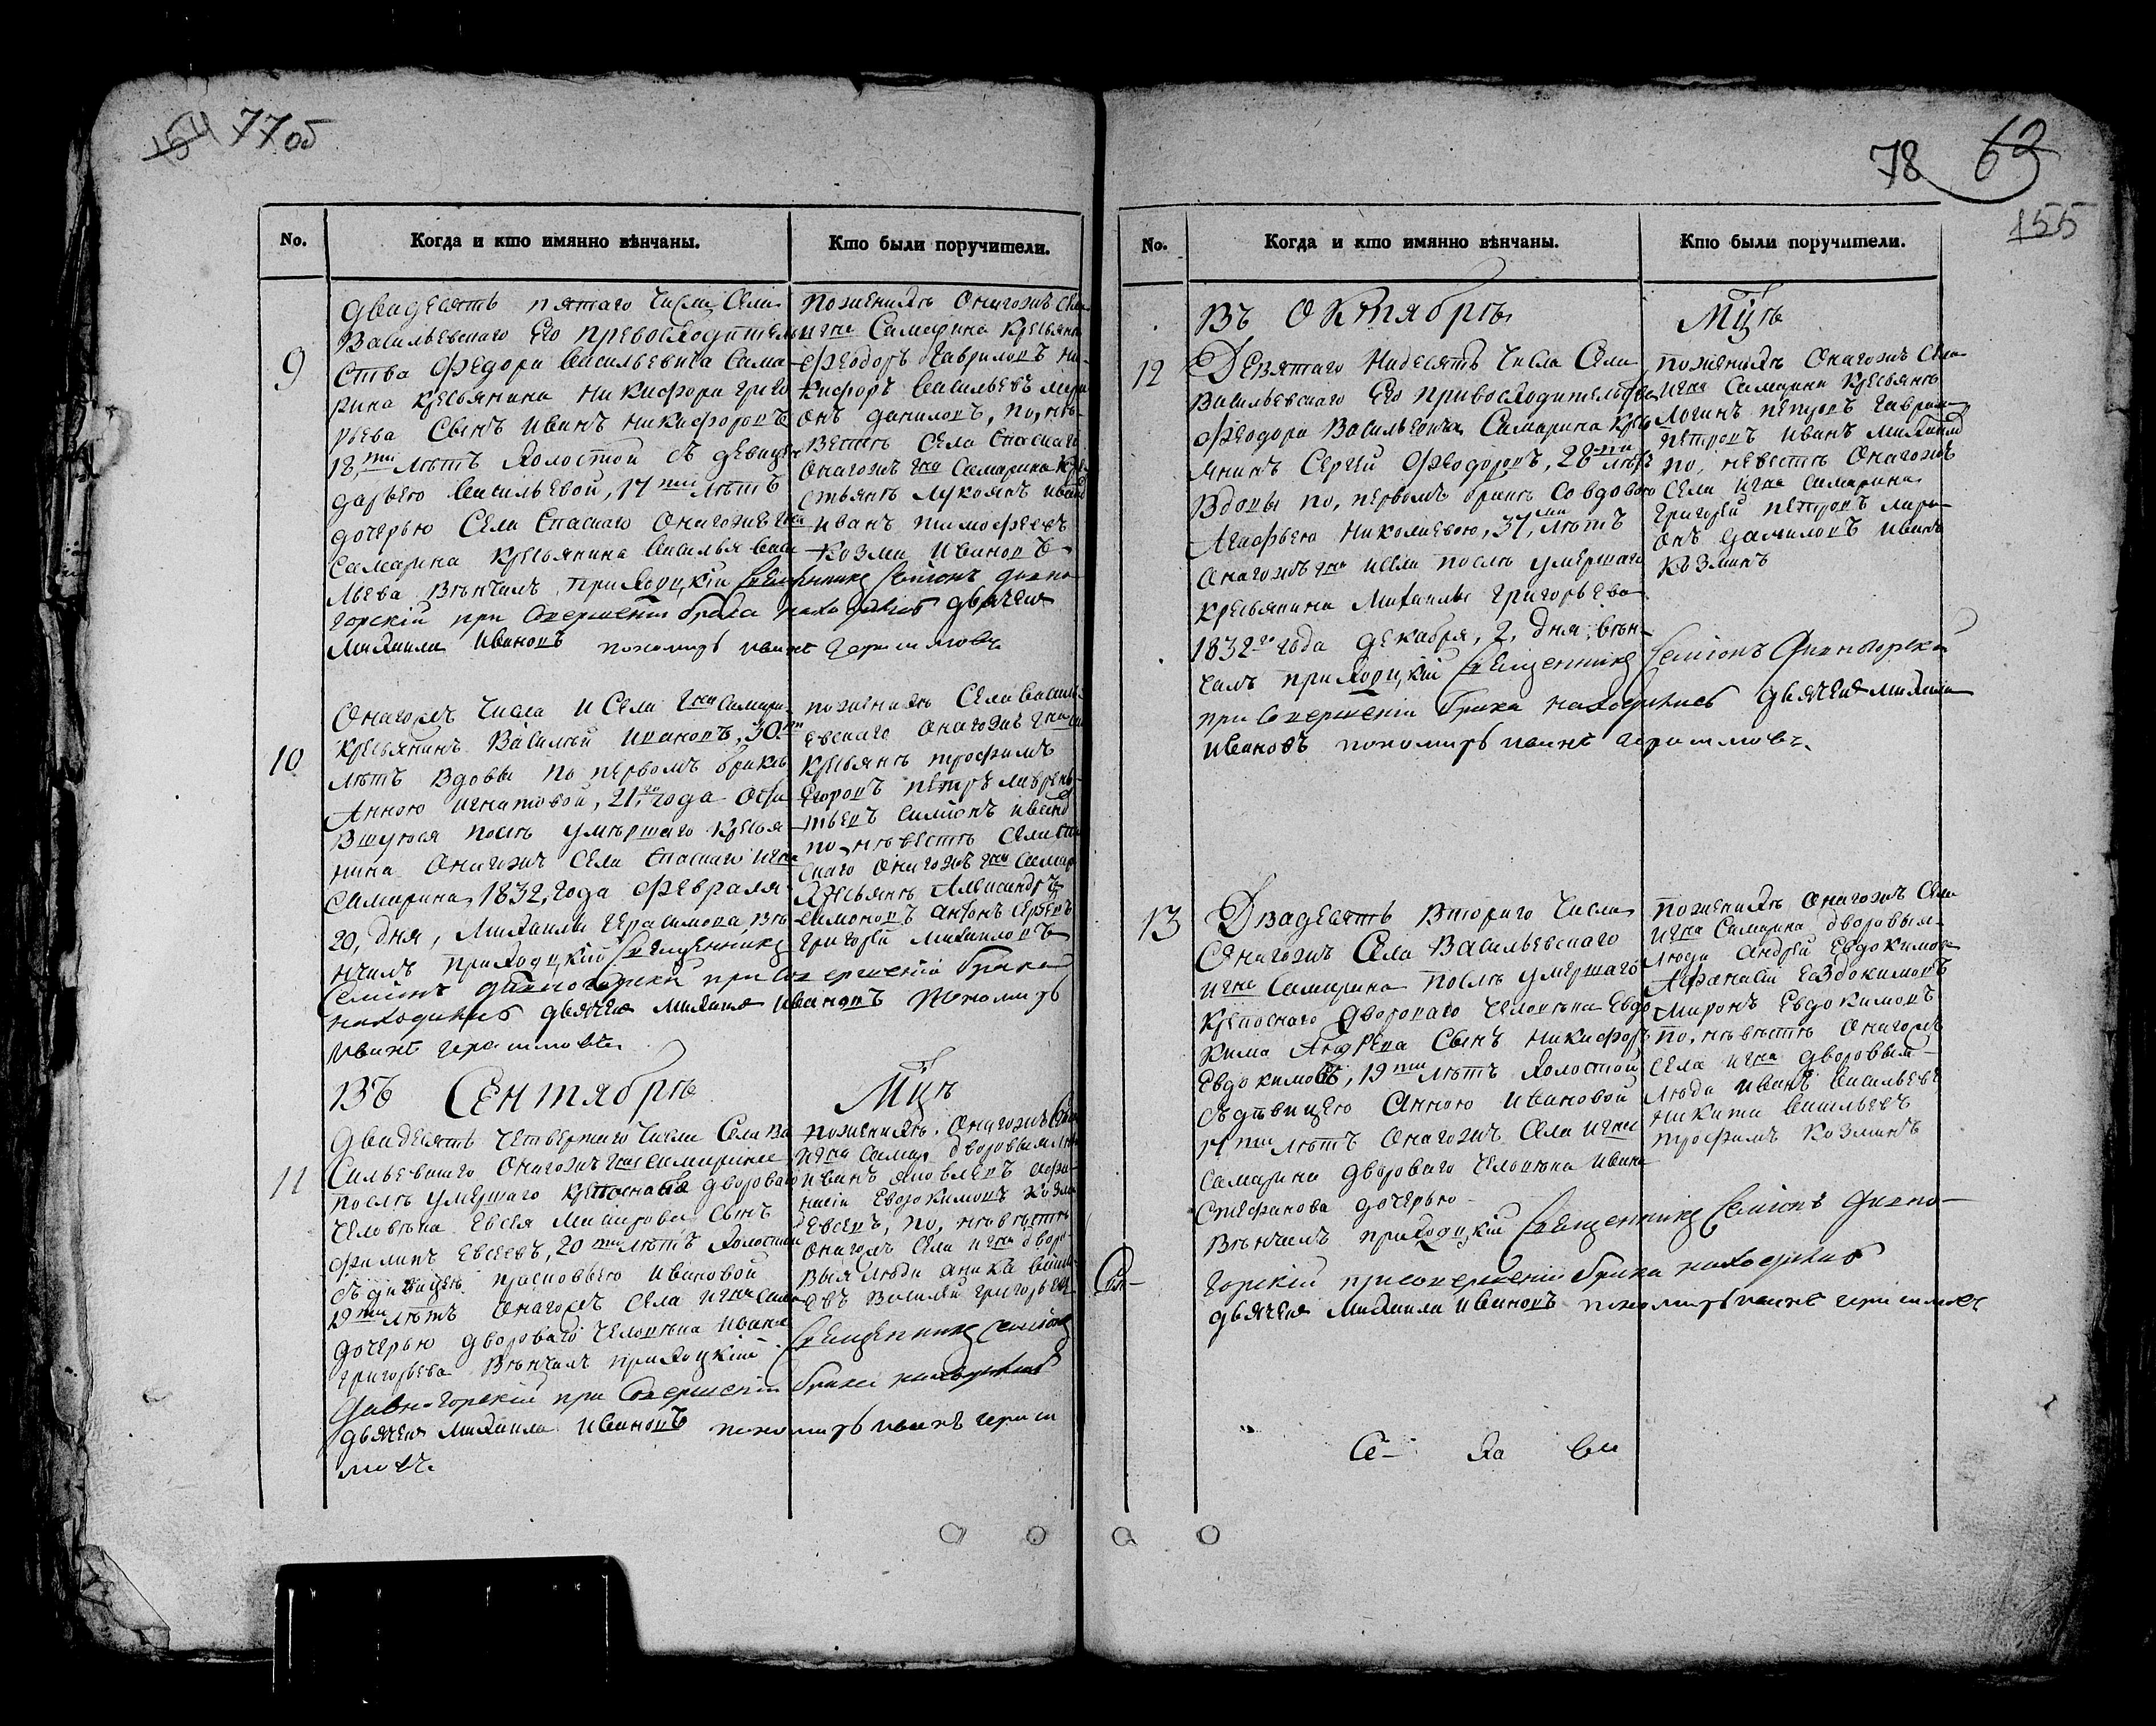 154 77 об
No. Когда и кто имянно вѣнчаны. Кто были поручители.
9
двадесять пятаго числа Села
Васильевскаго Его превосходитель
ства Федора Васильевича Сама
рина крестьянина Никифора Григо
рьева сынъ Иванъ Никифоровъ
18,ти лѣтъ холостой съ девицею
дарьею Васильевой, 17ти лѣтъ
дочерью Села Спаскаго онагожъ гна
Самарина крестьянина Василья Васи
льева Вѣнчалъ приходцкій священникъ Семіонъ Дивно
горскій при совершеніи брака находились дьячекъ
Михаила Ивановъ пономарь иванъ герасимовъ
по женихѣ онагожъ села
игна Самарина крестьяна
Феодоръ Гавриловъ Ни
кифоръ Васильевъ мири
онъ даниловъ, по, не
вестѣ села Спаскаго
онагожъ гна Самарина кре
стьянѣ
Иванъ тимофеевъ
Козма Ивановъ
10
Онагожъ числа и Села гна Самари
крестьянинъ Василей Ивановъ, 30ти
лѣтъ вдовы по первомъ бракѣ
Анною игнатовой, 21,го года оста
вшуюся послѣ умершаго крестья
нина онагожъ Села Спаскаго игна
Самарина, 1832, года Февраля
20, дня, Михаилы герасимова, вѣ
нчалъ приходцкій священникъ
Семіонъ дивногорскій при совершеніи брака
находились дьячекъ михаила Ивановъ пономарь
иванъ герасимовъ
по женихѣ Села Василь
евскаго онагожъ гна
крестьянѣ трофимъ
Егоровъ петръ лаврень
тьевъ Симіонъ ивано
по невестѣ села Спа
скаго онагожъ гна Самар
крестьянѣ Александръ
Симоновъ антонъ сергѣевъ
григорей михаиловъ
Въ Сентябрѣ Мцѣ
11
двадесять четвертаго числа Села Ва
сильевскаго онагожъ гна Самарина
послѣ умершаго крепоснаго двороваго
человека Евсея
сынъ
Филипъ Евсеевъ, 20ти лѣтъ холостой
съ дѣвицею прасковьею Ивановой
19ти лѣтъ онагожъ села игна Сама
дочерью двороваго человѣка Ивана
григорьева Вѣнчалъ приходцкій священникъ Семіонъ
Дивногорскій при совершеніи брака находились
дьячекъ Михаила Ивановъ пономарь иванъ герасі
мовъ
по женихѣ онагожъ села
игна Самар дворовыя лю
иванъ яковлевъ афа
насій Евдокимовъ козма
Евсеевъ, по, невестѣ
онагожъ села игна дворо
выя люди аника василь
евъ василей григорьевъ
78 62
155
No. Когда и кто имянно вѣнчаны. Кто были поручители.
Въ Октябрѣ Мцѣ
12
Девятаго надесять числа Села
Васильевскаго Его превосходительства
Феодора Васильевича Самарина крес
янинъ Сергей Феодоровъ, 28ми лѣтъ
вдовы по, первомъ бракѣ со вдовою
Агафьею Николаевою, 37,ми лѣтъ
онагожъ гна и села послѣ умершаго
крестьянина Михаилы григорьева
1832го года декабря, 2, дня, вѣн
чалъ приходцкій священникъ Семіонъ Дивногорскій
при совершеніи брака находились дьячекъ михаила
ивановъ пономарь иванъ герасимовъ.
по женихѣ онагожъ села
игна Самарина крестьянѣ
Логинъ петровъ гаврила
петровъ иванъ михаилов
по, невестѣ онагожъ
села игна самарина
григорей петровъ мири
онъ даниловъ иванъ
козминъ
13
Двадесять втораго числа
Онагожъ Села Васильевскаго
игна Самарина послѣ умершаго
крепоснаго двороваго человѣка Евдо
кима Андреева сынъ никифоръ
Евдокимовъ, 19ти лѣтъ холостой
съ дѣвицею Анною Ивановой
17ти лѣтъ онагожъ села игна
Самарина двороваго человѣка Ивана
Стефанова дочерью
Вѣнчалъ приходцкій священникъ Семіонъ Дивно
горскій при совершеніи брака находились
дьячекъ Михаила Ивановъ пономарь иванъ герасимовъ
по женихѣ онагожъ села
игна Самарина дворовыя
люди андрей Евдокимовъ
Афанасій Евдокимовъ
Миронъ Евдокимовъ
по, невестѣ онагожъ
села игна дворовыя
люди иванъ васильевъ
никита васильевъ
трофимъ козминъ